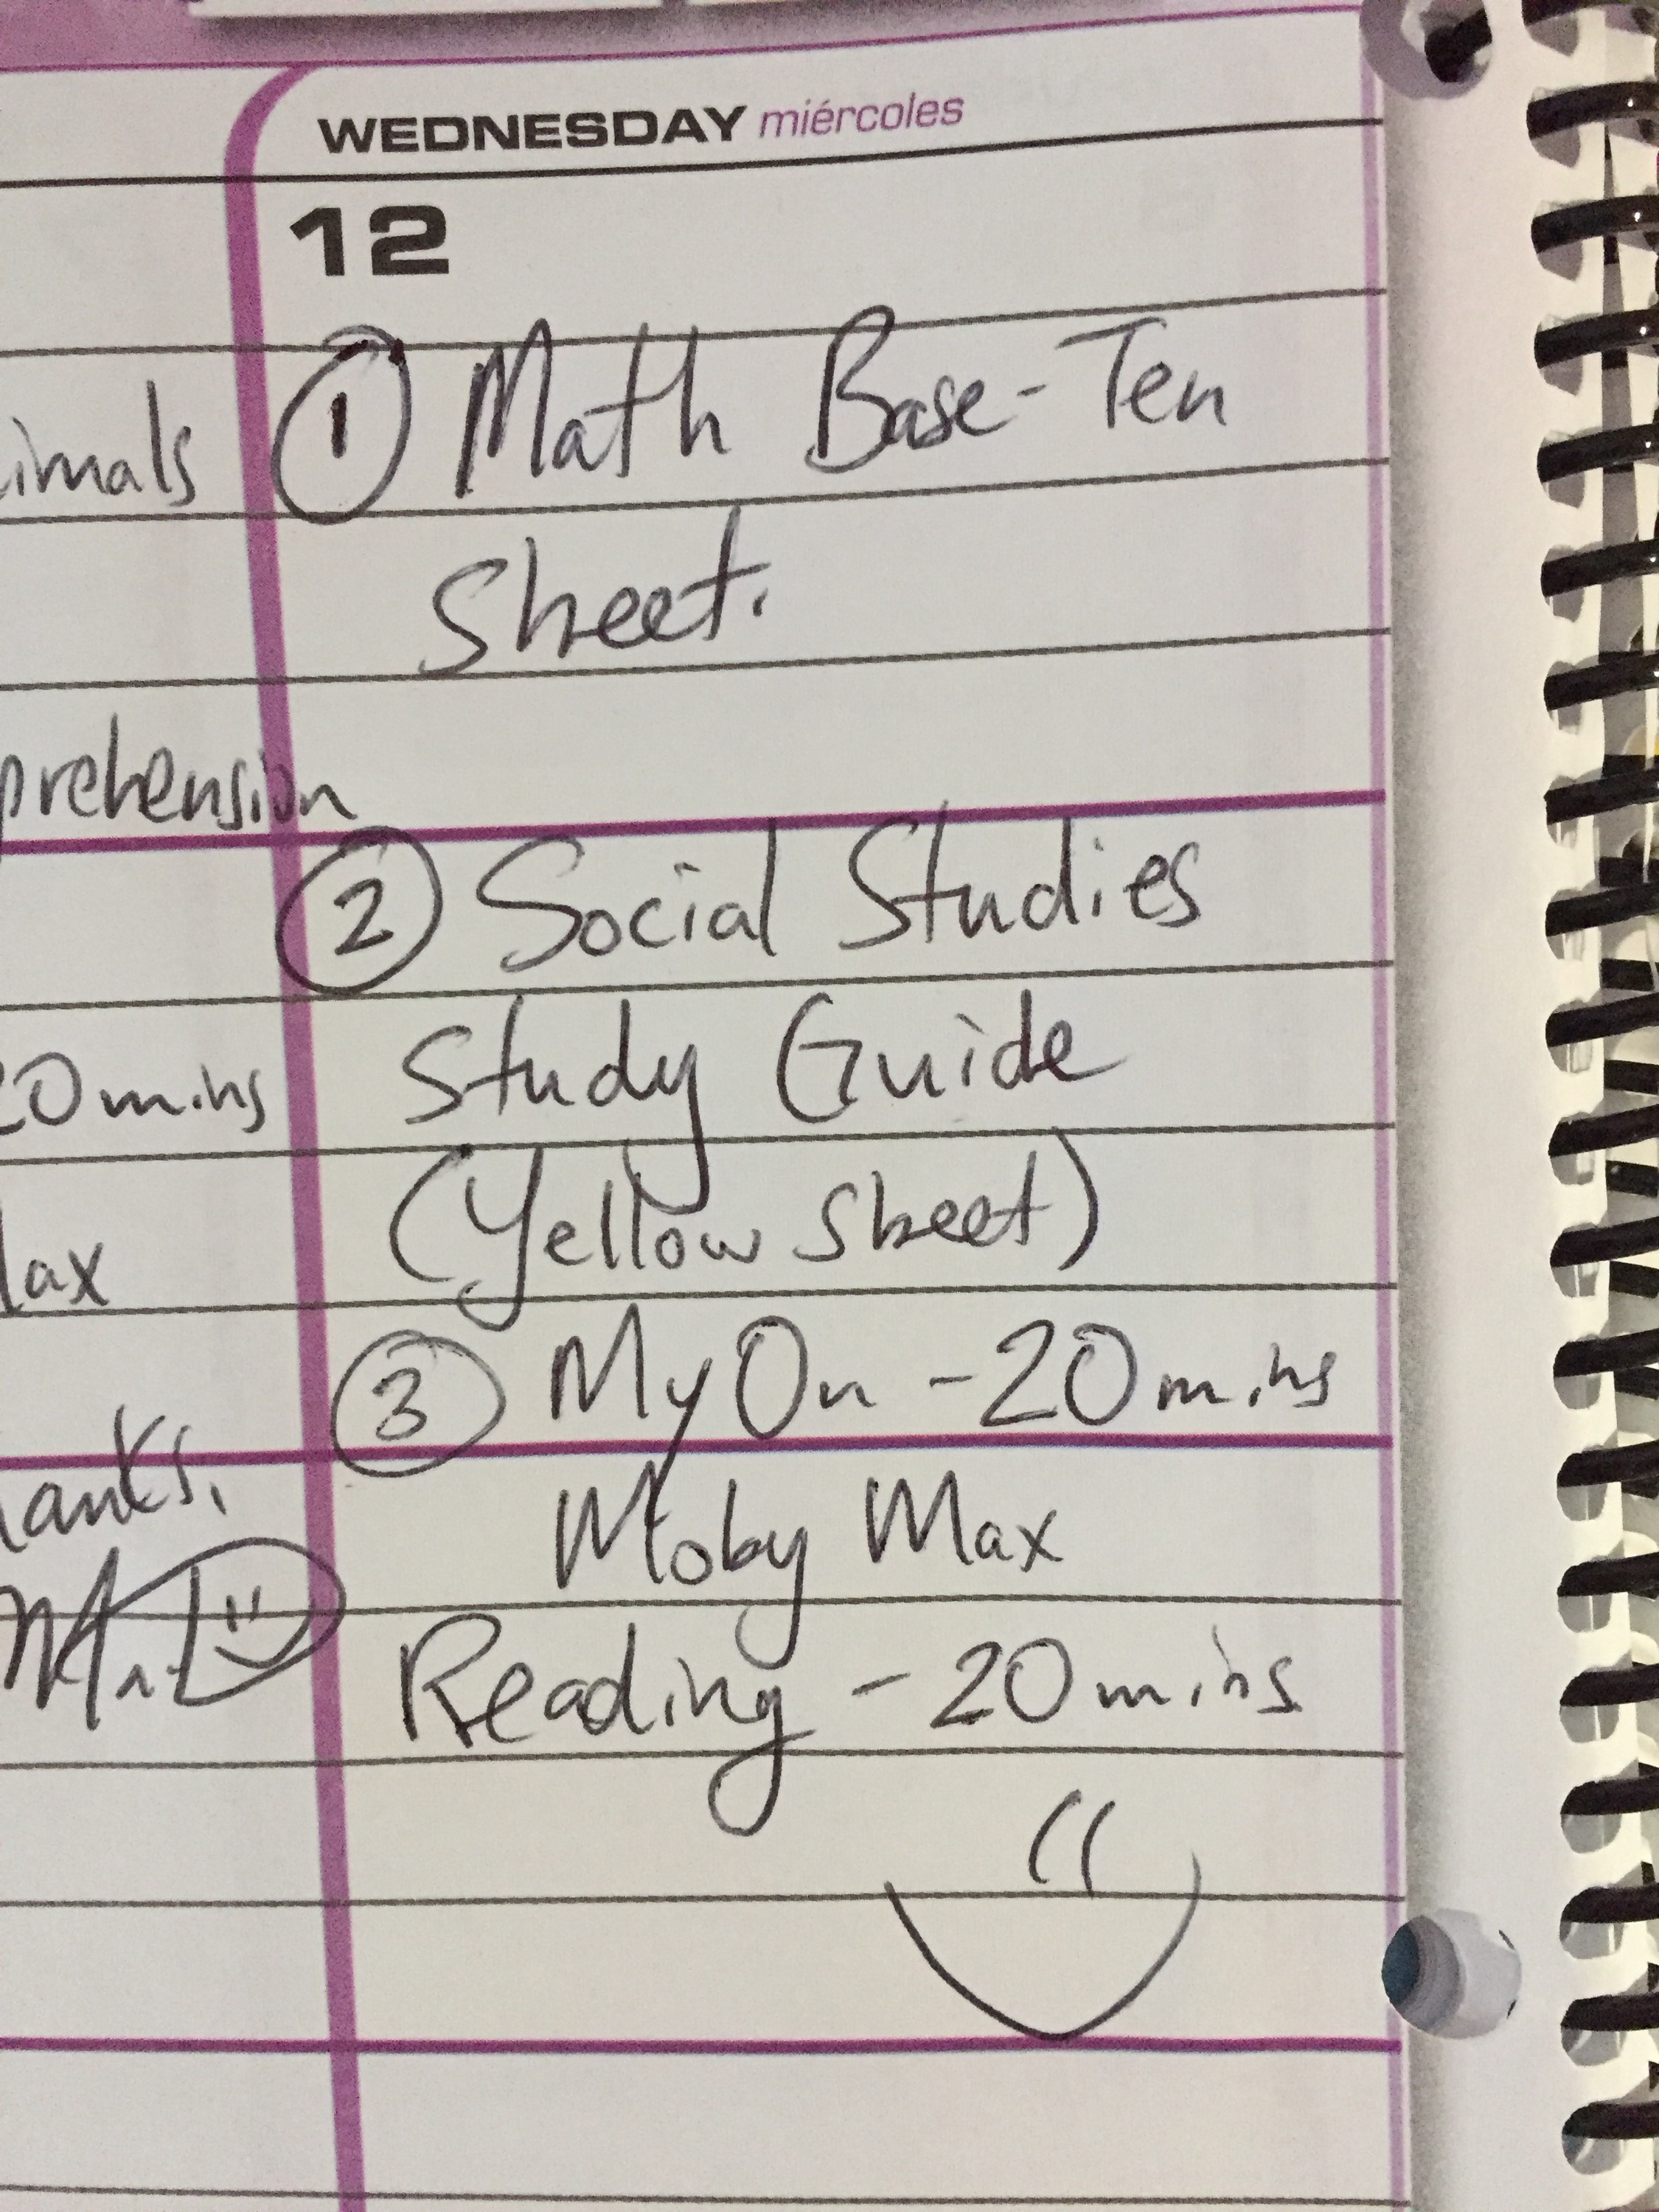 WEDNESDAY miércoles
12
① Math Base-Ten
Sheet.
② Social Studies
Study Guide
(Yellow sheet)
③ My On - 20 mins
Moby Max
Reading - 20 mins
imals
prehension
20 mins
ax
hanks,